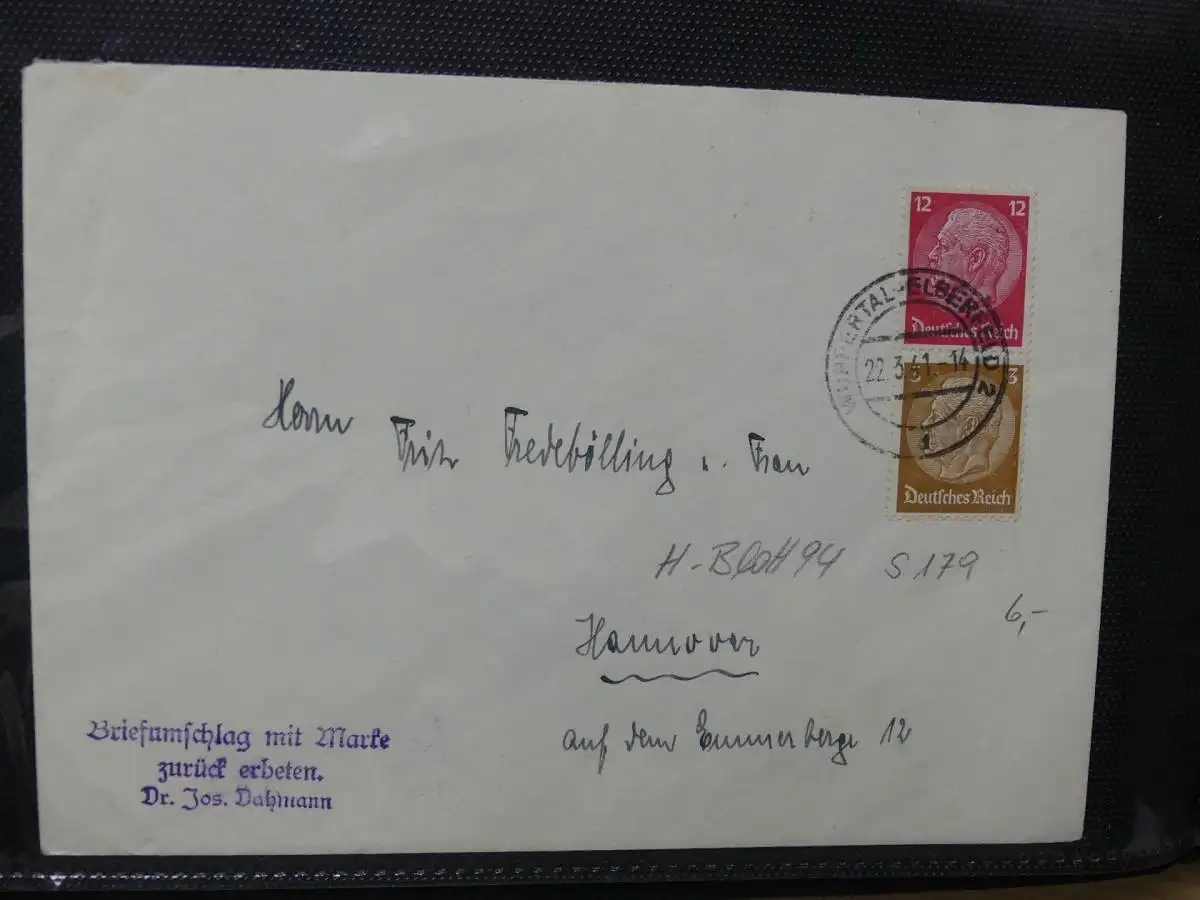 12 12
Deutsches Reich
WUPPERTAL-ELBERFELD 2
22.3.41.-14
1
3 3
Deutsches Reich
Herrn Fritz Fredebölling u. Frau
H-Blatt 94 S 179
6,-
Hannover
auf dem Emmerberge 12
Briefumschlag mit Marke
zurück erbeten.
Dr. Jos. Dahmann